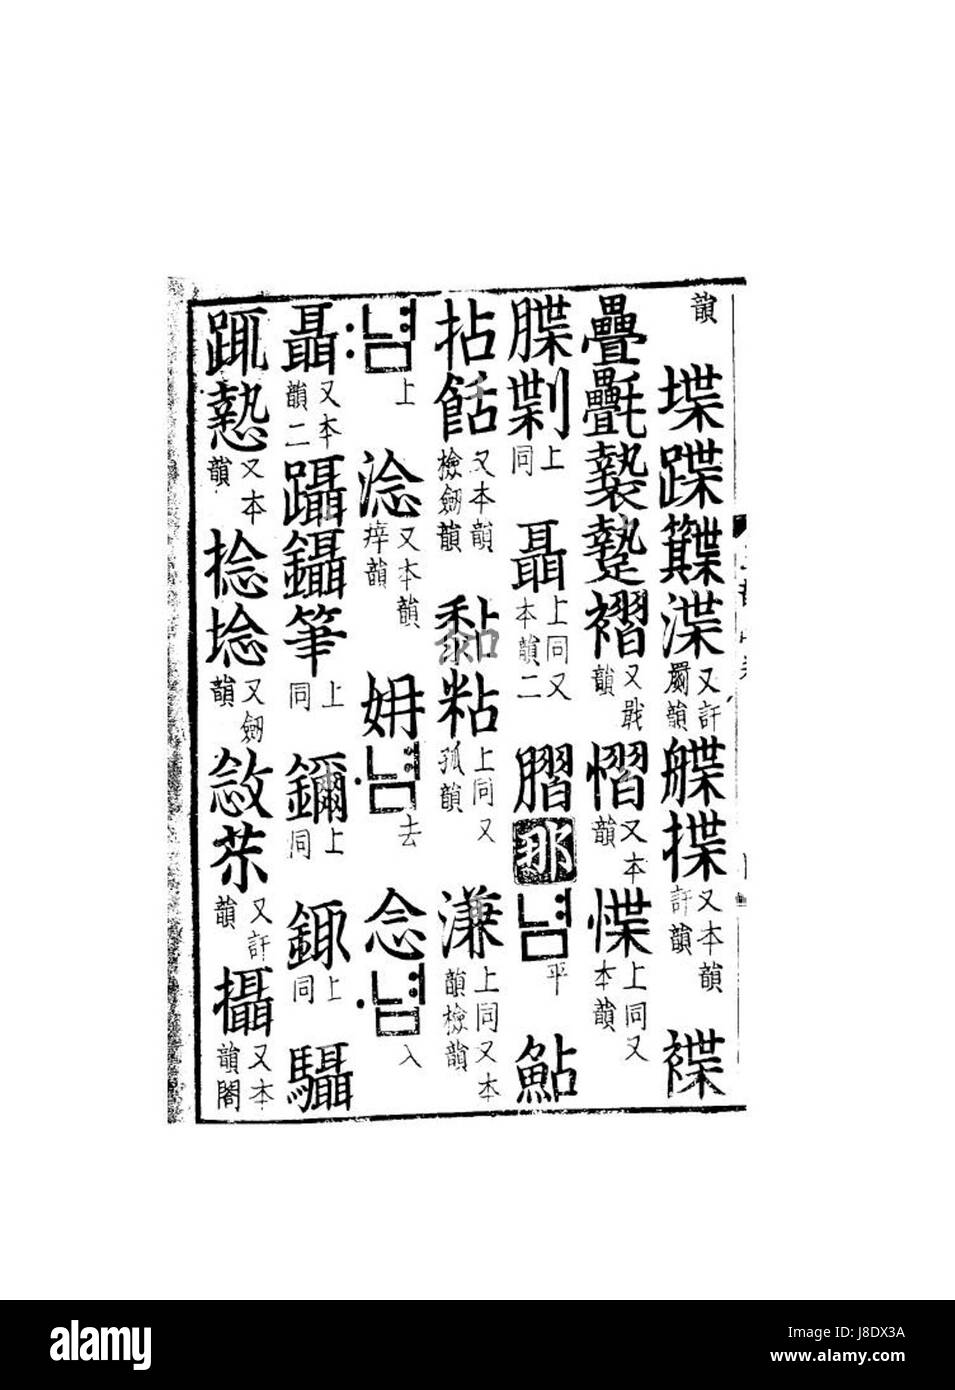 韻堞蹀渫又訐劂韻艓揲又本韻訐韻褋
疊氎褺褶又戢韻慴又本韻惵上同又本韻
牒上同聑上同又本韻二那념平鮎
拈又本韻檢劒韻黏粘上同又孤韻溓上同又本韻檢韻
:념上淰又本韻韻姌·념去念·녑入
聶又本韻二躡鑷上同鑈上同上同
慹又本韻捻埝又劒韻敜苶又訐韻攝又本韻閤
alamy
alamy
Image ID: J8DX3A
www.alamy.com